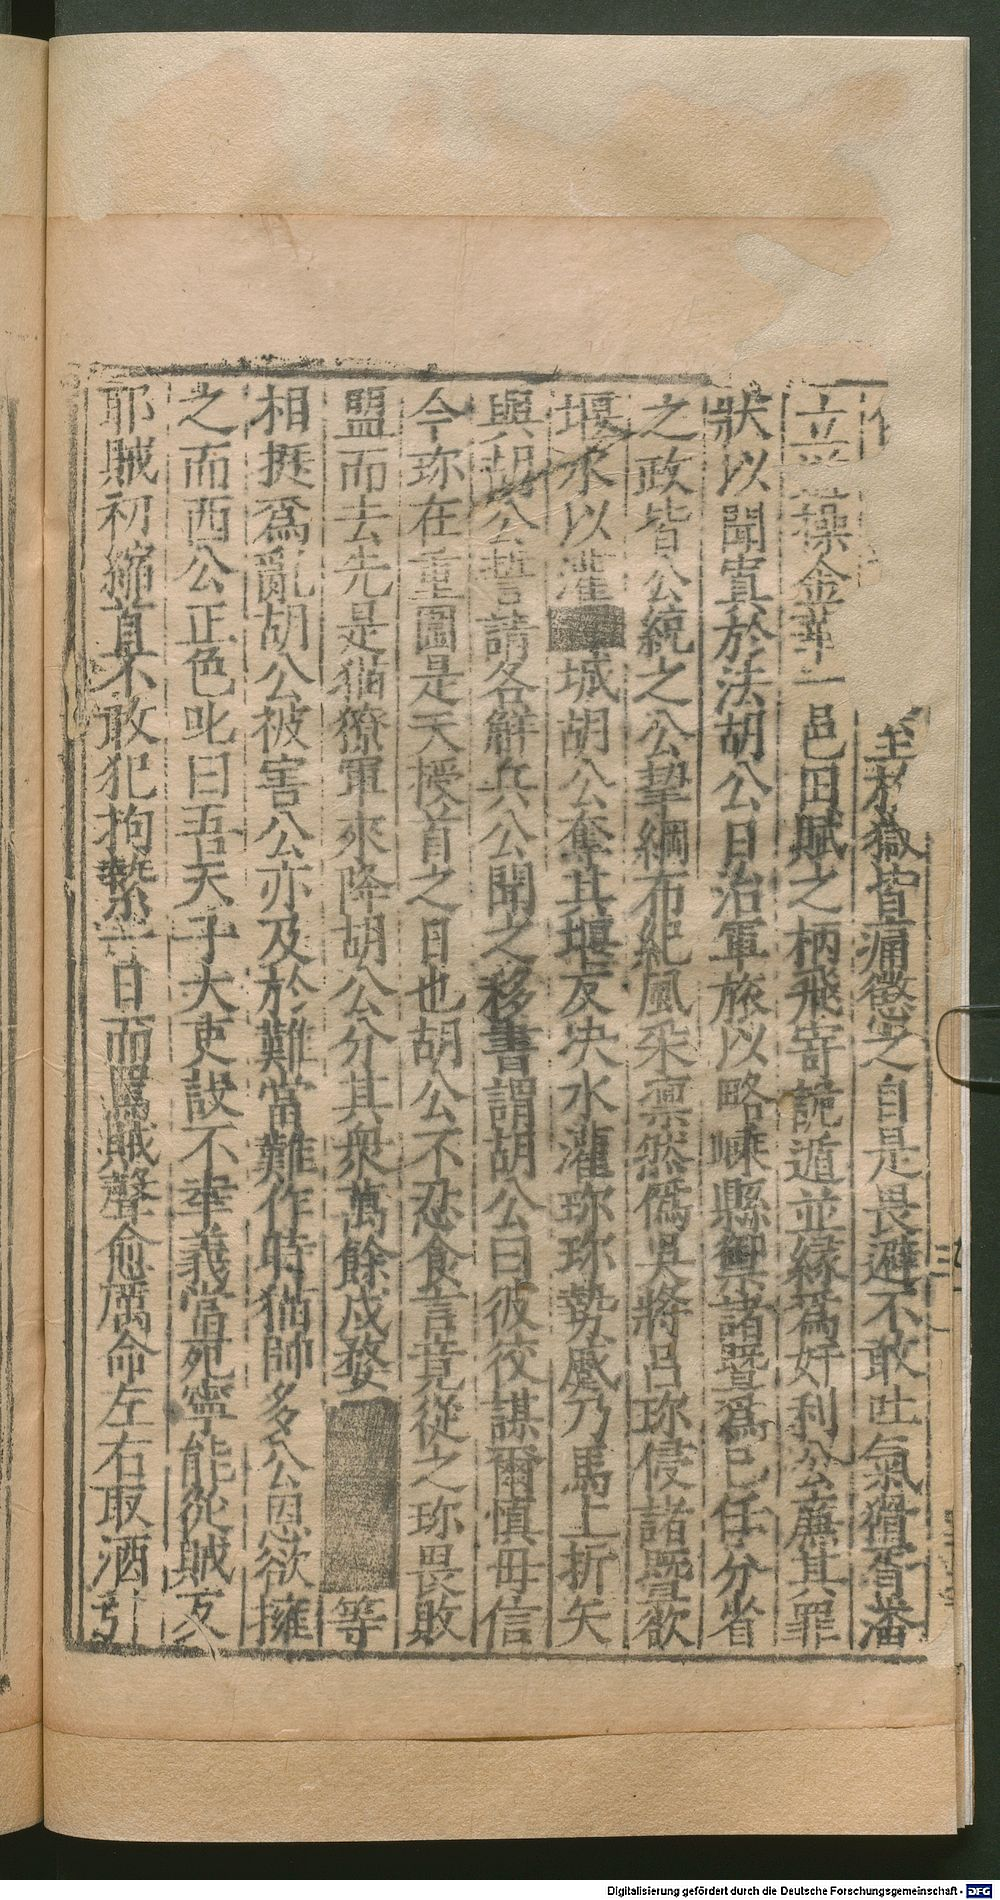 至於獄皆痛懲之自是畏避不敢吐氣猾胥潘
立操金華一邑田賦之柄飛寄詭遁並緣爲奸利公廉其罪
狀以聞寘於法胡公日治軍旅以略嵊縣禦諸暨爲己任分省
之政皆公統之公挈綱布紀風采凛然僞吳將呂珎侵諸曁欲
堰水以灌城胡公奪其堰反决水灌珎珎勢蹙乃馬上折矢
與胡公誓請各解兵公聞之移書謂胡公曰彼狡謀爾慎毋信
今珎在重圍是天授首之日也胡公不忍食言竟從之珎畏敗
盟而去先是猫獠軍來降胡公分其衆萬餘戍婺等
相挻爲亂胡公被害公亦及於難當難作時猫帥多公恩欲擁
之而西公正色叱曰吾天子大吏設不幸義當死寧能從賊反
耶賊初縮首不敢犯拘縶一日而罵賊聲愈厲命左右取酒引
三
Digitalisierung gefördert durch die Deutsche Forschungsgemeinschaft - DFG